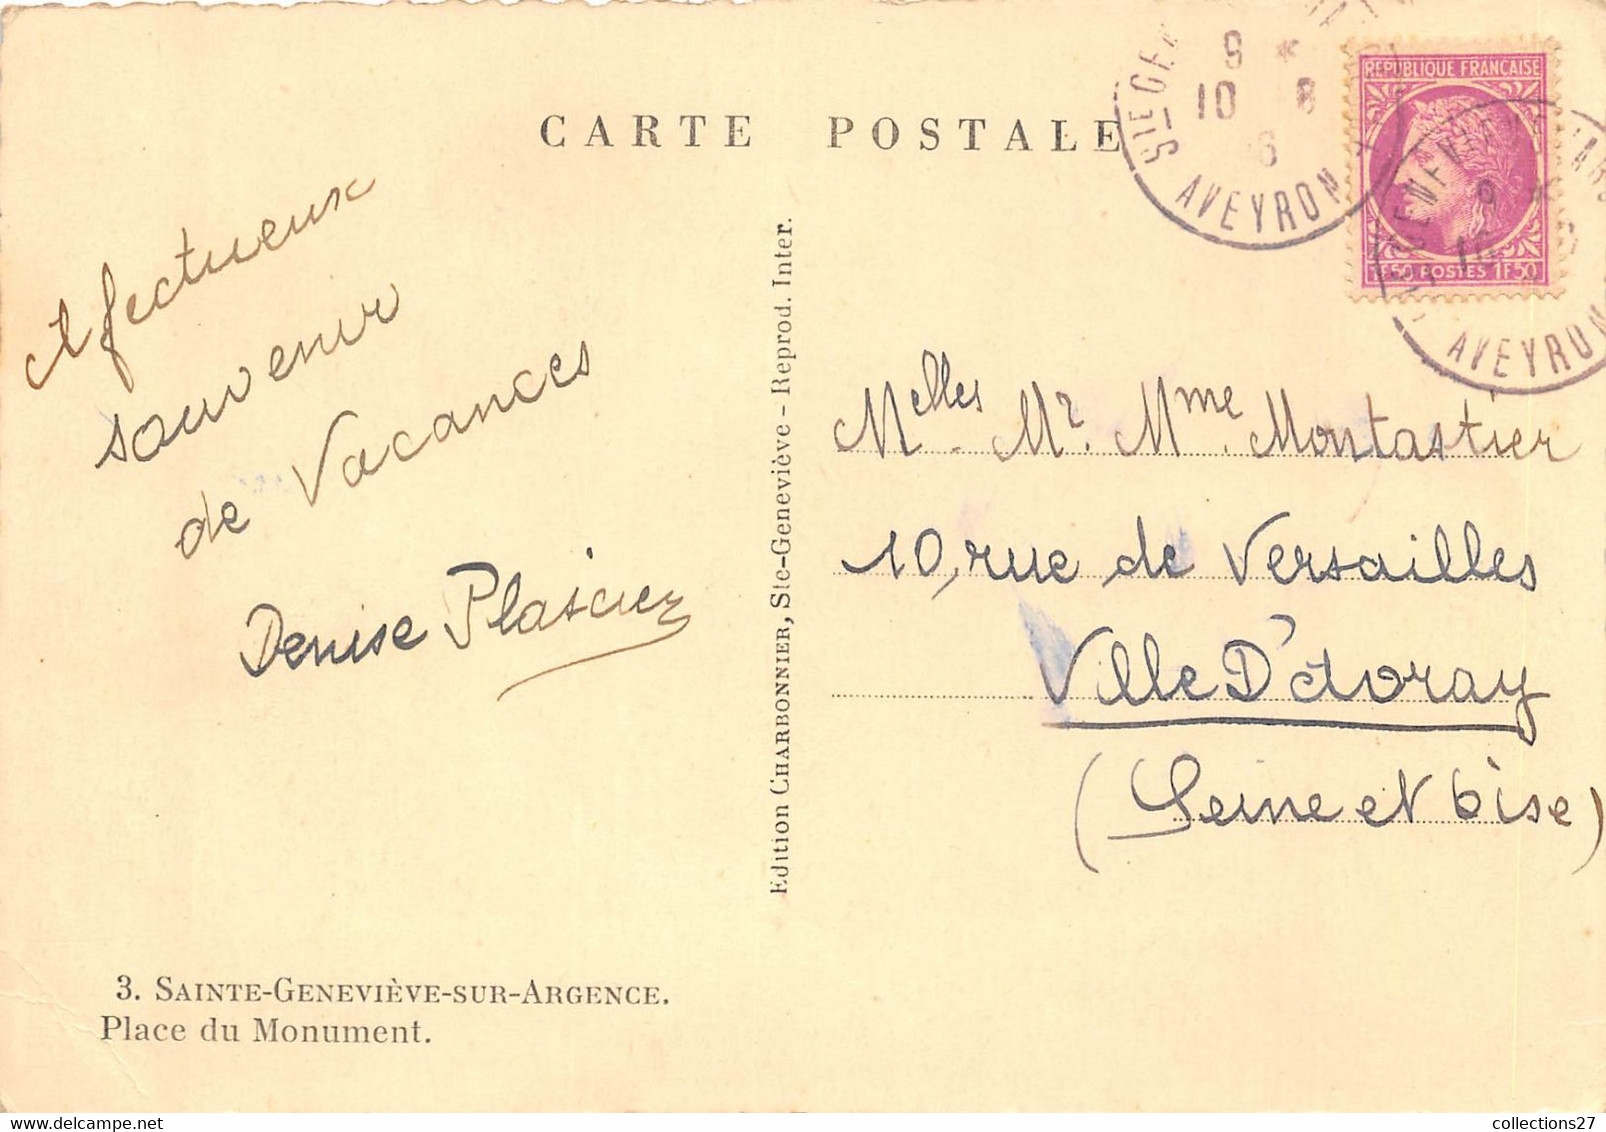 CARTE POSTALE
STE GEN
9 *
10 8
6
AVEYRON
REPUBLIQUE FRANÇAISE
1F50 POSTES 1F50
9 *
AVEYRON
Affectueux
souvenir
de Vacances
Denise
Edition CHARBONNIER, Ste-Geneviève - Reprod. Inter.
Melles. Mr. Mme. Montastier
10, rue de Versailles
Ville D'Avray
(Seine et Oise)
3. SAINTE-GENEVIÈVE-SUR-ARGENCE.
Place du Monument.
collections27